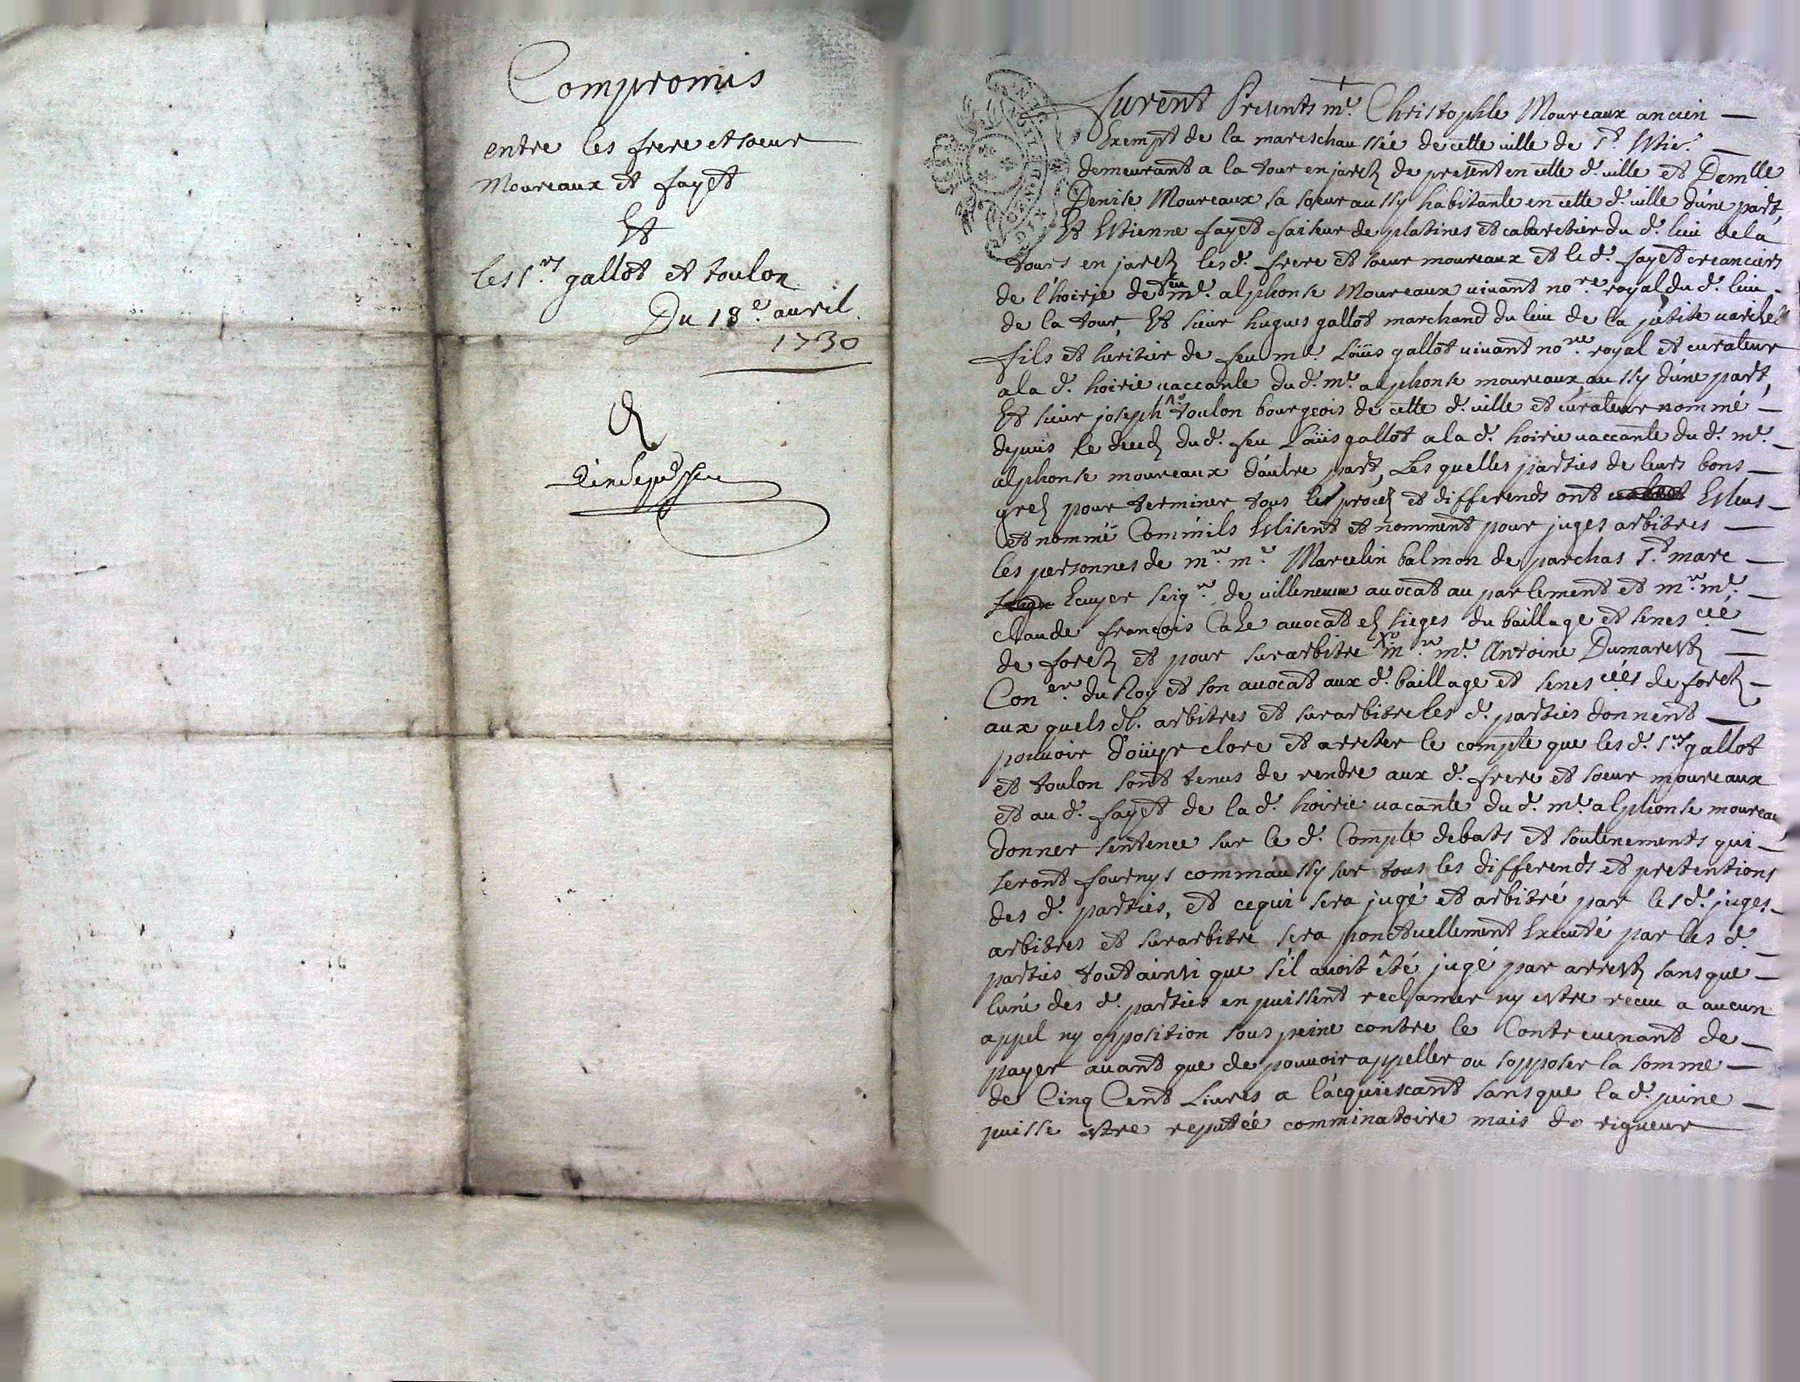 Compromis
entre les frere et soeur
Moureaux et fayet
Et
les Srs gallot et toulon
Du 18e avril.
1730
furent Presents me. Christophle Moureaux ancien
Exempt de la mareschaussée de cette ville de St. Etie.
demeurant a la tour en jarez de present en cette d. ville et Demlle
Denise Moureaux sa soeur aussy habitante en cette d. ville d'une part,
Et Estienne fayet faiseur de platines et cabaretier du d. lieu de la
tours en jarez les d. frere et soeur moureaux et le d. fayet creanciers
de l'hoirie de feu me. alphonse Moureaux vivant nore royal du d. lieu
de la tour, Et sieur hugues gallot marchand du lieu de la petite varizelle
fils et heritier de feu me. Loüis gallot vivant nore. royal et curateur
a la d. hoirie vaccante du d. me. alphonse moureaux aussy d'une part,
Et sieur joseph toulon bourgeois de cette d. ville et curateur nommé
depuis le decez du d. feu Loüis gallot a la d. hoirie vaccante du d. me.
alphonse moureaux d'autre part, Les quelles parties de leurs bons
grez pour terminer tous les procez et differends ont Esleus
et nommé Comm'ils Eslisent et nomment pour juges arbitres
les personnes de mre. me. Marcelin balmon de parchas St. marc
Ecuyer seigr. de villeneuve avocat au parlement et mre. me.
claude françois Caze avocat ez sieges du baillage et senescée
de forez et pour surarbitre mre. me. Antoine Dumarestz
Coner. du Roy et son avocat aux d. baillage et senescées de forez
aux quels d. arbitres et surarbitre les d. parties donnent
pouvoir d'oüyr clore et arreter le compte que les d. Srs gallot
et toulon sont tenus de rendre aux d. frere et soeur moureaux
et au d. fayet de la d. hoirie vacante du d. me. alphonse moureau
donner sentence sur le d. Compte debats et soutenements qui
seront fournys comm'aussy sur tous les differends et pretentions
des d. parties, et ce qui sera jugé et arbitré par les d. juges
arbitres et surarbitre sera ponctuellement Executé par les d.
parties tout ainsi que s'il avoit êté jugé par arrestz sans que
l'une des d. parties en puissent reclamer ny estre receu a aucun
appel ny opposition sous peine contre le Contrevenant de
payer avant que de pouvoir appeller ou s'opposer la somme
de Cinq Cent Livres a l'acquiescant sans que la d. peine
puisse estre reputée comminatoire mais de rigueur